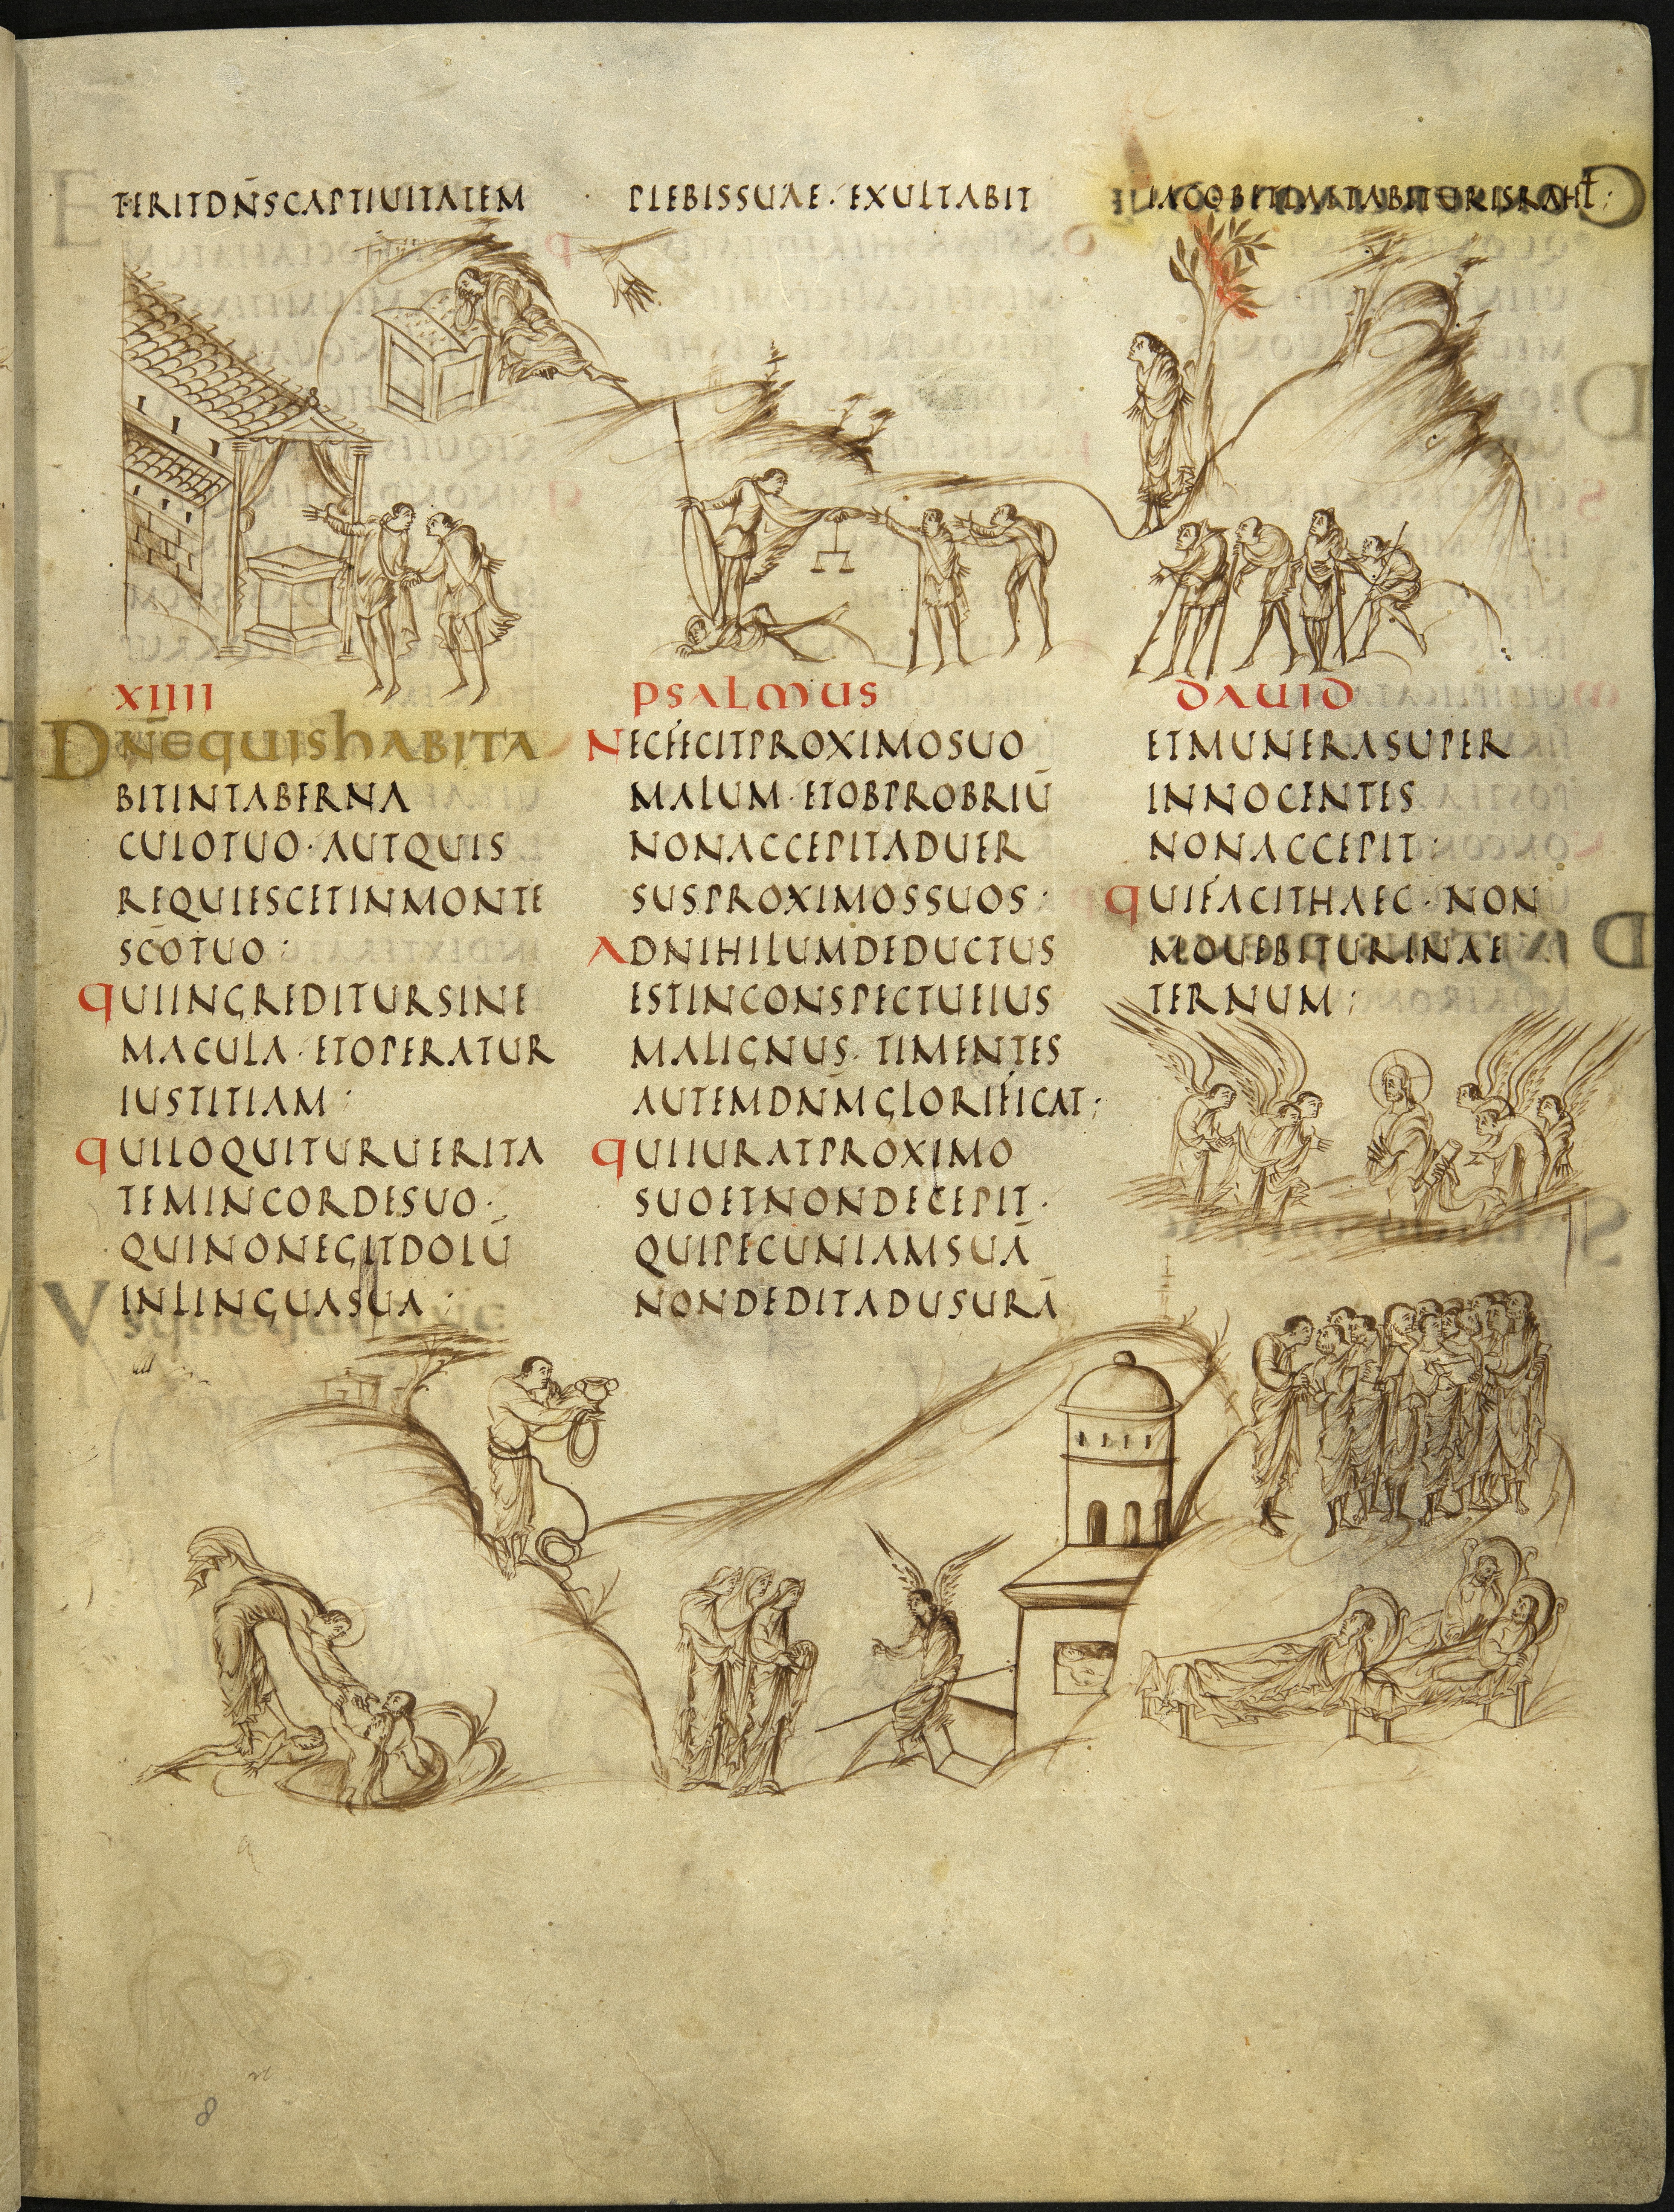 TERITDN̄SCAPTIUITATEM
PLEBISSUAE· EXULTABIT
IACOBETLAETABITURISRAHL̄:
XIIII
PSALMUS
DAUID
DN̄EQUISHABITA
BITINTABERNA
CULOTUO· AUTQUIS
REQUIESCETINMONTE
SC̄OTUO:
QUIINGREDITURSINE
MACULA· ETOPERATUR
IUSTITIAM:
QUILOQUITURUERITA
TEMINCORDESUO·
QUINONEGITDOLŪ
INLINGUASUA:
NECFECITPROXIMOSUO
MALUM· ETOBPROBRIŪ
NONACCEPITADUER
SUSPROXIMOSSUOS·
ADNIHILUMDEDUCTUS
ESTINCONSPECTUEIUS
MALIGNUS· TIMENTES
AUTEMDN̄MGLORIFICAT:
QUIIURATPROXIMO
SUOETNONDECEPIT·
QUIPECUNIAMSUĀ
NONDEDITADUSURĀ
ETMUNERASUPER
INNOCENTES
NONACCEPIT:
QUIFACITHAEC· NON
MOUEBITURINAE
TERNUM:
8